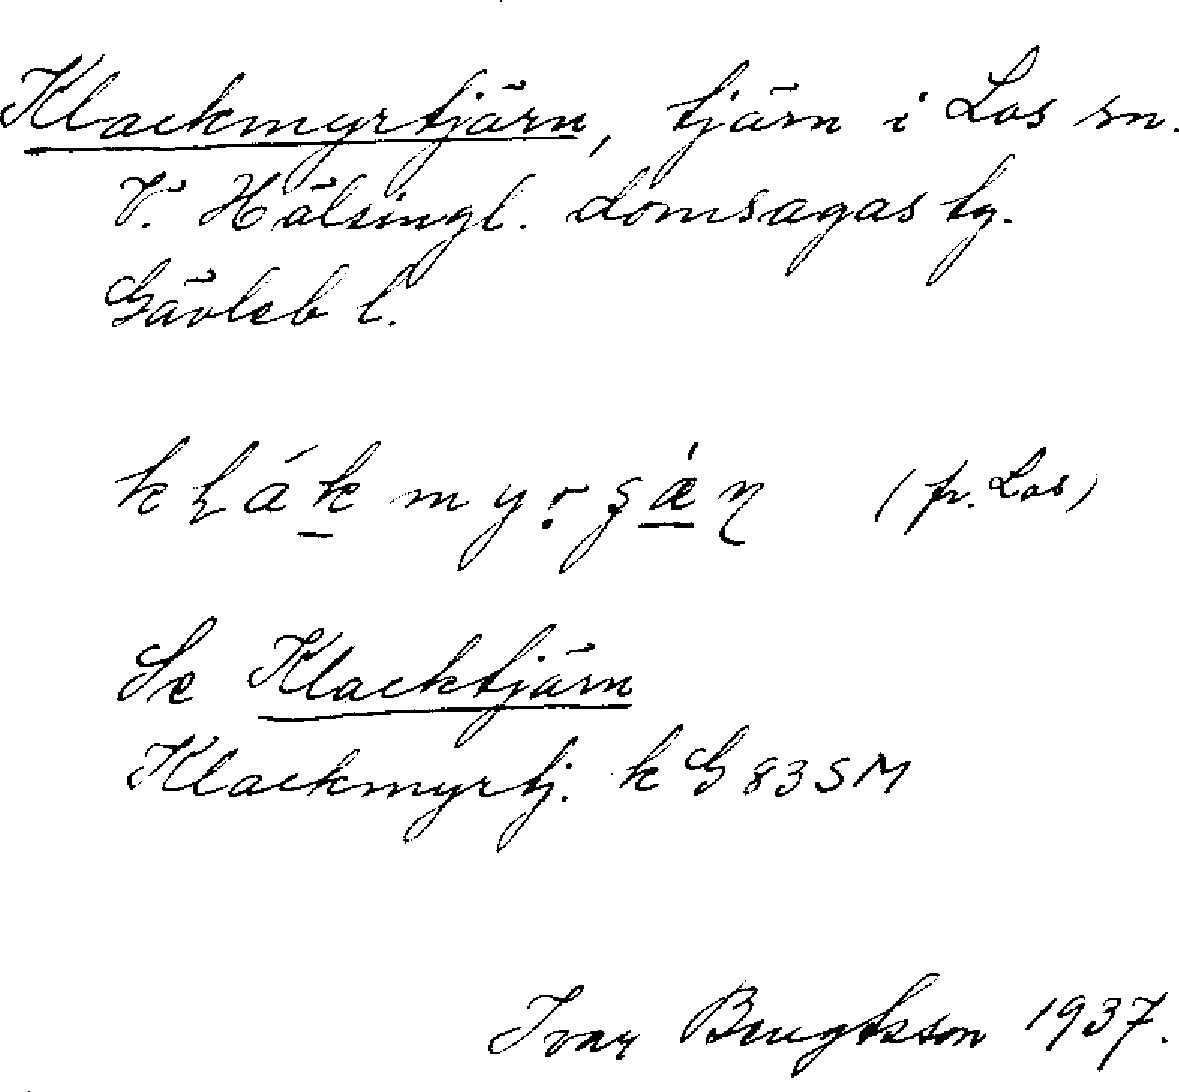 Klackmyrtjärn, tjärn i Los sn.
V. Hälsingl. domsagas tg.
Gävleb l.
(fr. Los)
Se Klacktjärn
Klackmyrtj. k G 83 SM
Ivar Bengtsson 1937.